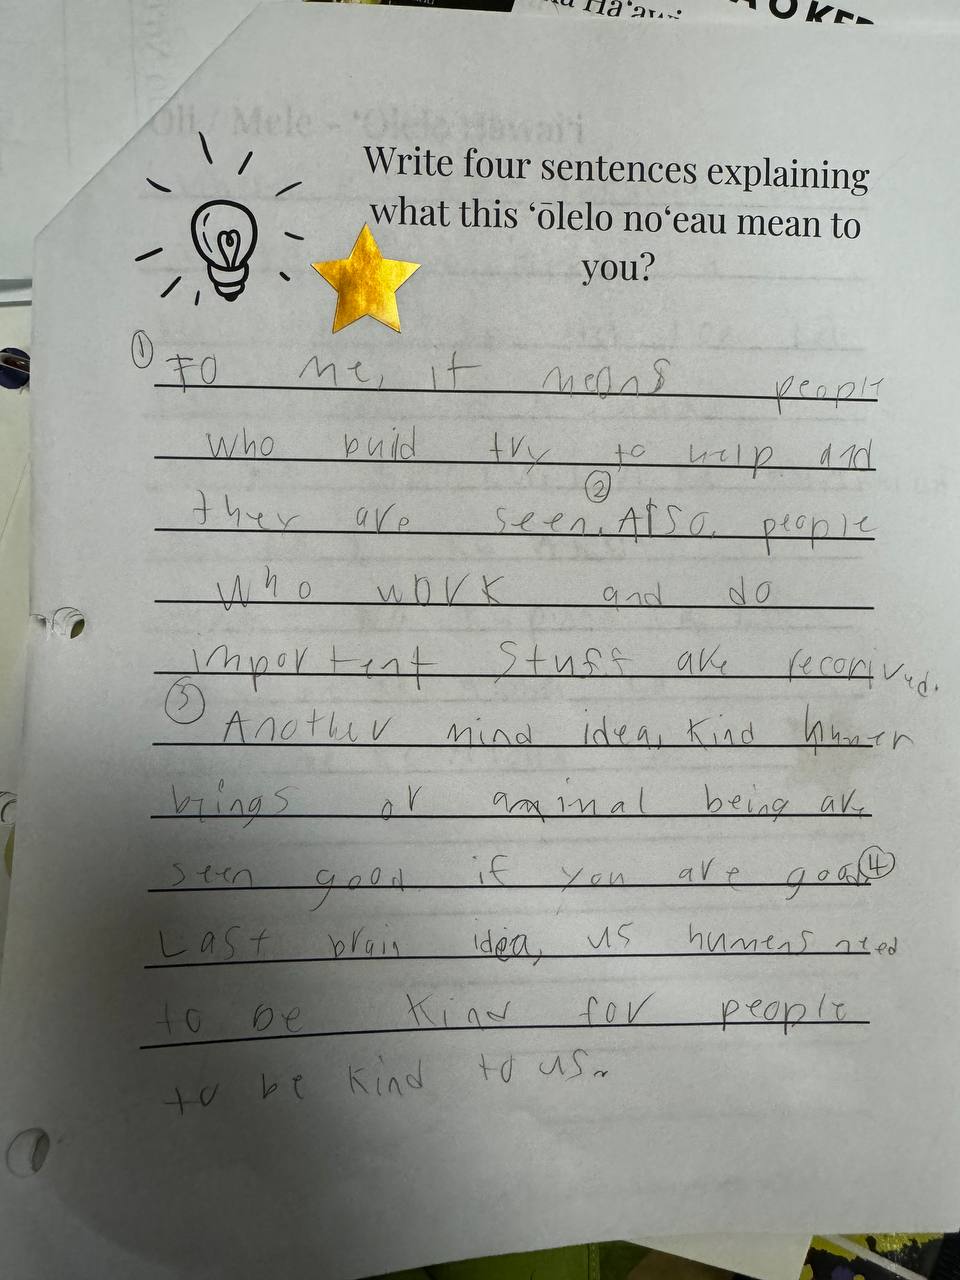 Ha'awi
OKED
Oli / Mele - ‘Ōlelo Hawai‘i
Write four sentences explaining
what this ‘ōlelo no‘eau mean to
you?
① To me, it means people
who build try to help and
they are seen. ② Also, people
who work and do
importent stuff are recorived.
③ Another mind idea, kind humen
brings or aminal being are
seen good if you are good. ④
Last brain idea, us humens need
to be kind for people
to be kind to us.